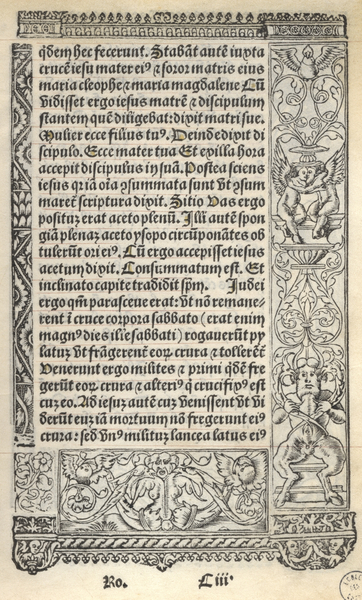 q̄dem hec fecerunt. Stabāt autē iuxta
crucē iesu mater eiꝰ ⁊ soror matris eius
maria cleophe ⁊ maria magdalene Cū
vidisset ergo iesus matrē ⁊ discipulum
stantem quē diligebat: dixit matri sue.
Mulier ecce filius tuꝰ. Deinde dixit di
scipulo. Ecce mater tua Et ex illa hora
accepit discipulus in suā. Postea sciens
iesus qꝛ iā oīa ꝯsummata sunt vt ꝯsum
maret scriptura dixit. Sitio Vas ergo
positū erat aceto plenū. Illi autē spon
giā plenaꝫ aceto ysopo circūponātes ob
tulerūt ori eiꝰ. Cū ergo accepisset iesus
acetum dixit. Consummatum est. Et
inclinato capite tradidit sp̄m. Iudei
ergo qm̄ parasceue erat: vt nō remane-
rent ī cruce corpora sabbato (erat enim
magnꝰ dies ille sabbati) rogauerūt py
latuꝫ vt frāgerent̄ eoꝝ crura ⁊ tollerēt̄
Venerunt ergo milites ⁊ primi q̄dē fre
gerūt eoꝝ crura ⁊ alteriꝰ q̄ crucifixꝰ est
cuꝫ eo. Ad iesuꝫ autē cuꝫ venissent vt vi
derūt euꝫ iā mortuum nō fregerunt eiꝰ
crura: sed vnꝰ militum lancea latus eiꝰ
Ro. C iiiꝰ